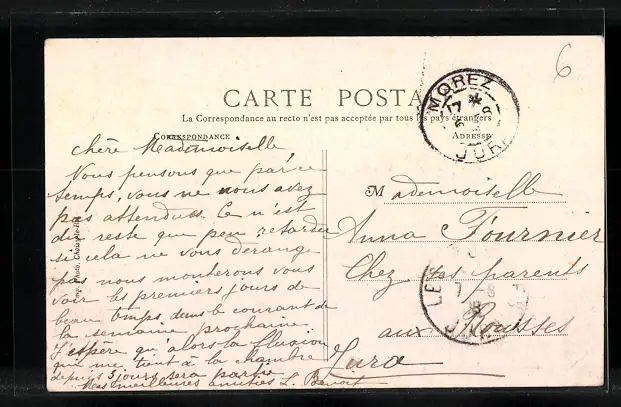 6
CARTE POSTA
La Correspondance au recto n'est pas acceptée par tous les pays étrangers
CORRESPONDANCE
ADRESSE
MOREZ
JURA
chère Mademoiselle
Nous pensons que par ce
temps, vous ne nous avez
pas attendus. Ce n'est
du reste que peu retarder
si cela ne vous dérange
pas nous monterons vous
voir les premiers jours de
beau temps, dans le courant de
la semaine prochaine.
J'espère qu'alors la fluxion
qui me tient à la chambre
depuis 3 jours sera partie
Mes meilleures amitiés L. Benoit
Mademoiselle
Anna Fournier
Chez ses parents
aux Rousses
Jura